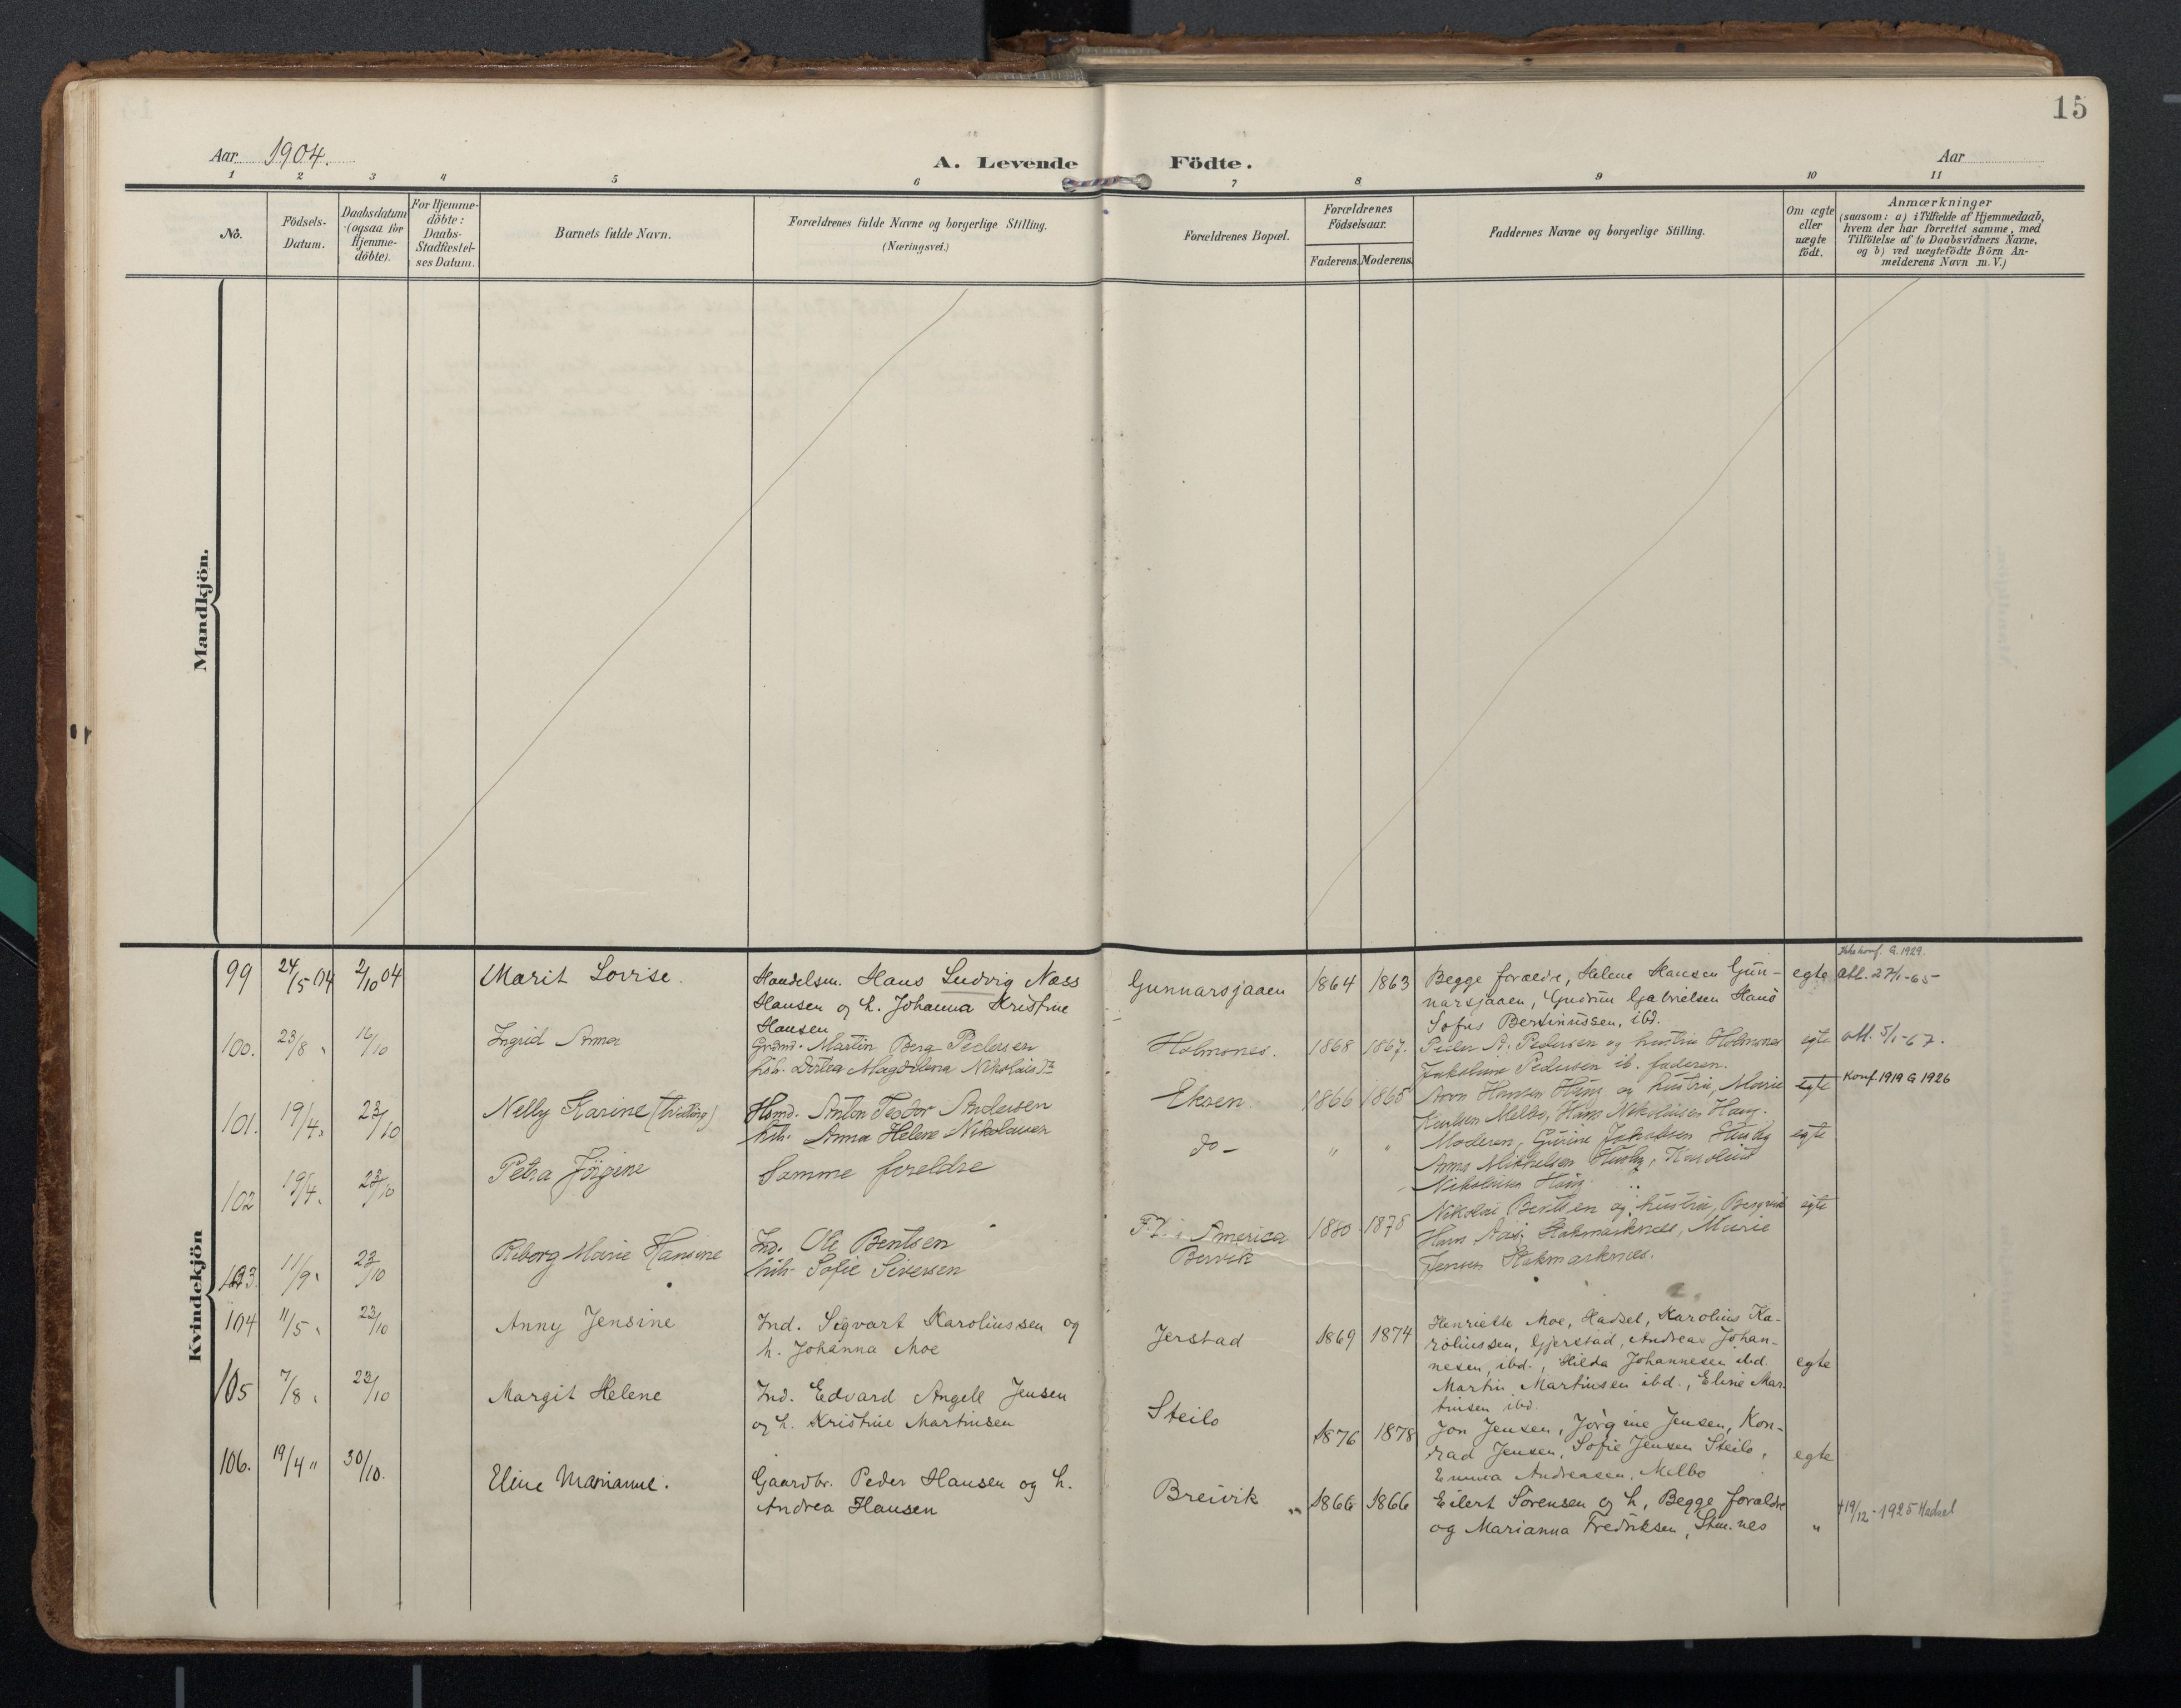 15
Aar 1904.
A. Levende Födte.
Aar
1 2 3 4 5 6 7 8 9 10 11
No.
Födsels-
Datum.
Daabsdatum
(ogsaa for
Hjemme-
döbte).
For Hjemme-
döbte:
Daabs-
Stadfæstel-
ses Datum.
Barnets fulde Navn.
Forældrenes fulde Navne og borgerlige Stilling.
(Næringsvei.)
Forældrenes Bopæl.
Forældrenes
Födselsaar.
Faderens. Moderens.
Faddernes Navne og borgerlige Stilling.
Om ægte
eller
uægte
födt.
Anmærkninger
(saasom: a) i Tilfælde af Hjemmedaab,
hvem der har forrettet samme, med
Tilföielse af to Daabsvidners Navne,
og b) ved uægtefödte Börn An-
melderens Navn m. V.)
Mandkjön.
Kvindekjön
99 24/5 04 2/10 04 Marit Lovise.
Handelsm. Hans Ludvig Næss
Hansen og h. Johanna Kristine
Hansen
Gunnarsjaaen 1864 1863
Begge forældre, Helene Hansen Gun-
narsjaaen, Gudrun Gabrielsen Hans
Sofus Bertinussen, ibd.
egte
konf. G. 1929.
att. 27/1-65
100. 23/8 " 16/10 Ingrid Anna
Grdmd. Martin Berg Pedersen
hsh. Dortea Magdalena Nikolaisdr
Holmones. 1868 1867.
Peder A. Pedersen og hustru Holmones
Jakobine Pedersen ib. faderen.
egte att. 5/1-67.
101. 19/4 " 23/10 Nelly Karine (tvilling)
Hsmd. Anton Teodor Andersen
hsh. Anna Helene Nikolaisen
Eksen 1866 1865
Aron Hansen Haug og hustru, Marie
Knutsen Melbo, Hans Nikolaisen Haug.
egte Konf. 1919 G 1926
102 19/4 " 23/10 Petra Jörgine
Samme foreldre
do - " "
Moderen, Gurine Jakobsen Husby
Anna Mikkelsen Husby, Karolius
Nikolaisen Haug.
egte
103. 11/9 " 23/10 Riborg Marie Hansine
Ind. Ole Bentsen
hsh. Sofie Siversen
F. T. i America
Borvik
1880 1878
Nikolai Bentsen og hustru,
Hans Aas, Stokmarknes, Marie
Jensen Stokmarknes.
egte
104 11/5 " 23/10 Anny Jensine
Ind. Sigvart Karoliussen og
h. Johanna Moe
Jerstad 1869 1874
Henriette Moe, Hadsel, Karolius Ka-
roliussen, Gjerstad, Andreas Johan-
nesen, ibd., Hilda Johannesen ibd.
Martin Martinsen ibd., Eline Mar-
tinsen ibd.
egte
105 7/8 " 23/10 Margit Helene
Ind. Edvard Angell Jensen
og h. Kristine Martinsen
Steilo 1876 1878
Jon Jensen, Jörgine Jensen, Kon-
rad Jensen, Sofie Jensen Steilo,
Emma Andreasen, Melbo
egte
106. 19/4 " 30/10. Eline Marianne.
Gaardbr. Peder Hansen og h.
Andrea Hansen
Breivik " 1866 1866
Eilert Sörensen og h, Begge forældre
og Marianna Fredriksen, Stm.nes
"
† 19/12-1925 Hadsel